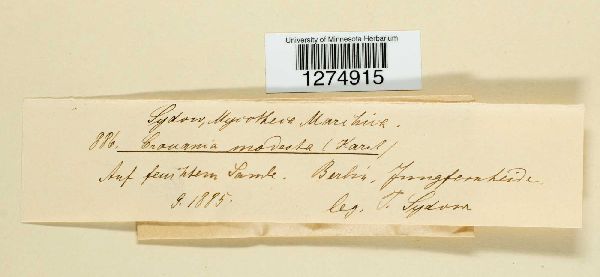 University of Minnesota Herbarium
1274915
Sydow, Mycotheca Marchica.
886. Crouania modesta (Karst)
Auf feuchtem Sande. Berlin, Jungfernheide.
9. 1885. leg. P. Sydow